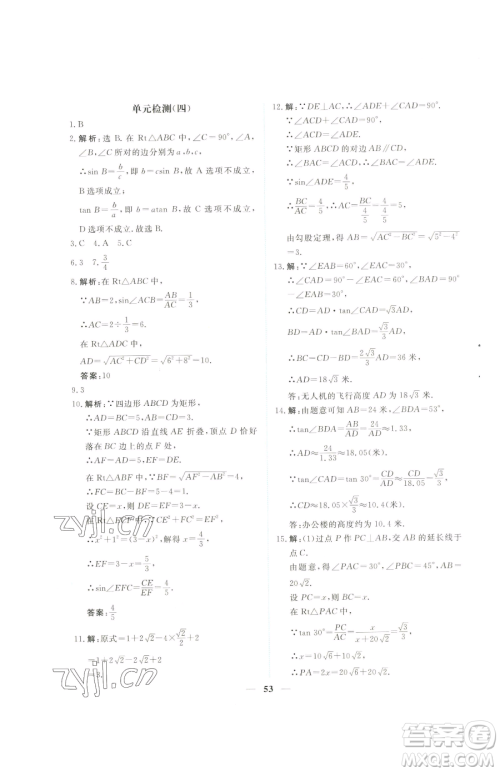 单元检测(四)
1.B
2.解析:选B.在Rt△ABC中,∠C=90°,∠A,
∠B,∠C所对的边分别为a,b,c,
∴sin B=b/c,即b=csin B,故A选项不成立,
B选项成立;
tan B=b/a,即b=atan B,故C选项不成立,
D选项不成立.
3.C 4.A 5.C
6.3 7.3/4
8.解析:在Rt△ABC中,
∵AB=2,sin∠ACB=AB/AC=1/3,
∴AC=2÷1/3=6.
在Rt△ADC中,
AD=√(AC²+CD²)=√(6²+8²)=10.
答案:10
9.3
10.解析:∵四边形ABCD为矩形,
∴AD=BC=5,AB=CD=3,
∵矩形ABCD沿直线AE折叠,顶点D恰好
落在BC边上的点F处,
∴AF=AD=5,EF=DE,
在Rt△ABF中,∵BF=√(AF²-AB²)=4,
∴CF=BC-BF=5-4=1,
设CE=x,则DE=EF=3-x,
在Rt△ECF中,∵CE²+FC²=EF²,
∴x²+1²=(3-x)²,解得x=4/3,
∴EF=3-x=5/3,
∴sin∠EFC=CE/EF=4/5
答案:4/5
11.解:原式=1+2√2-4×√2/2+2
=1+2√2-2√2+2
=3.
12.解:∵DE⊥AC,∴∠ADE+∠CAD=90°.
∵∠ACD+∠CAD=90°,
∴∠ACD=∠ADE.
∵矩形ABCD的对边AB∥CD,
∴∠BAC=∠ACD.
∵sin∠ADE=4/5,
∴BC/AC=4/5,
∴AC=BC/(4/5)=4/(4/5)=5.
由勾股定理,得AB=√(AC²-BC²)=√(5²-4²)
=3.
13.解:∵∠EAB=60°,∠EAC=30°,
∴∠CAD=60°,∠BAD=30°,
∴CD=AD·tan∠CAD=√3AD,
BD=AD·tan∠BAD=√3/3AD,
∴BC=CD-BD=2√3/3AD=36,
∴AD=18√3 米.
答:无人机的飞行高度AD为18√3 米.
14.解:由题意可知AB=24米,∠BDA=53°,
∴tan∠BDA=AB/AD≈1.33,
∴AD≈24/1.33≈18.05(米).
∵tan∠CAD=tan 30°=CD/AD=CD/18.05=√3/3,
∴CD≈18.05×√3/3≈10.4(米).
答:办公楼的高度约为10.4米.
15.解:(1)过点P作PC⊥AB,交AB的延长线于
点C.
由题意,得∠PAC=30°,∠PBC=45°,AB=
20√2.
设PC=x,则BC=x,
在Rt△PAC中,
∵tan 30°=PC/AC=x/(x+20√2)=√3/3,
∴x=10√6+10√2,
∴PA=2x=20√6+20√2,
53